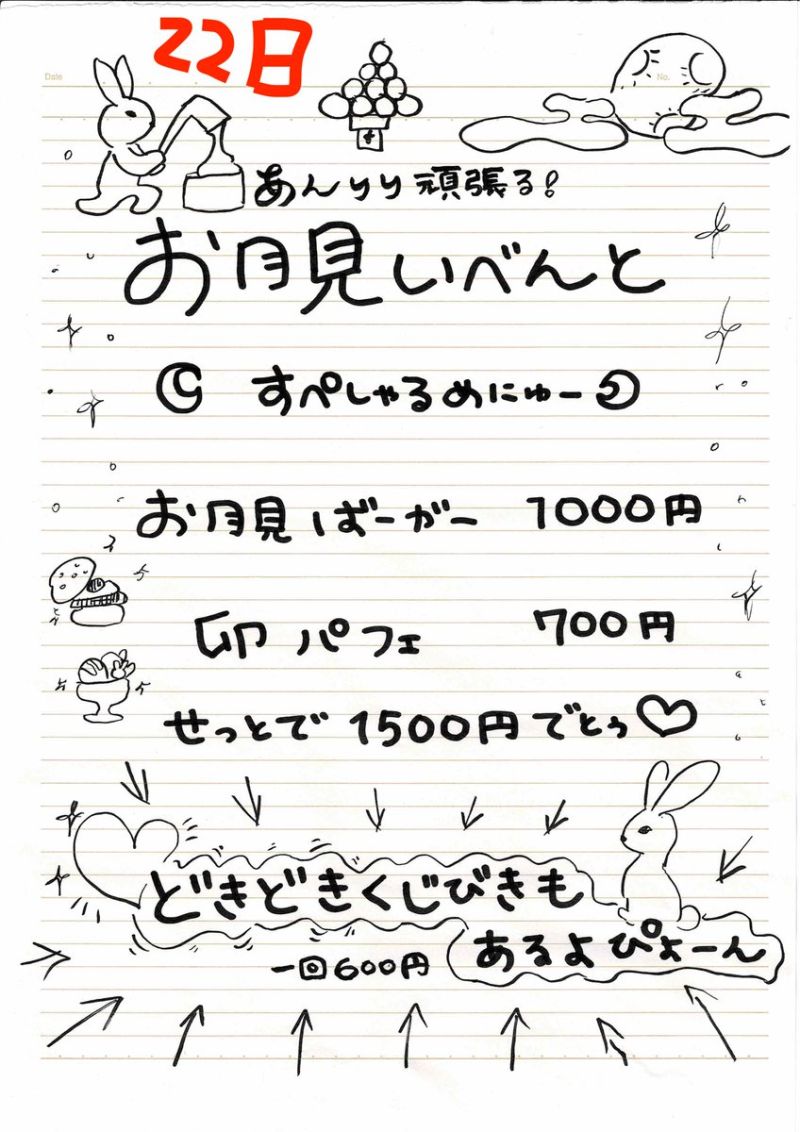 22日
Date
No.
あんりり頑張る!
お月見いべんと
すぺしゃるめにゅー
お月見ばーがー 1000円
卯パフェ 700円
せっとで 1500円でとぅ♡
どきどきくじびきも
あるよぴょーん
一回600円